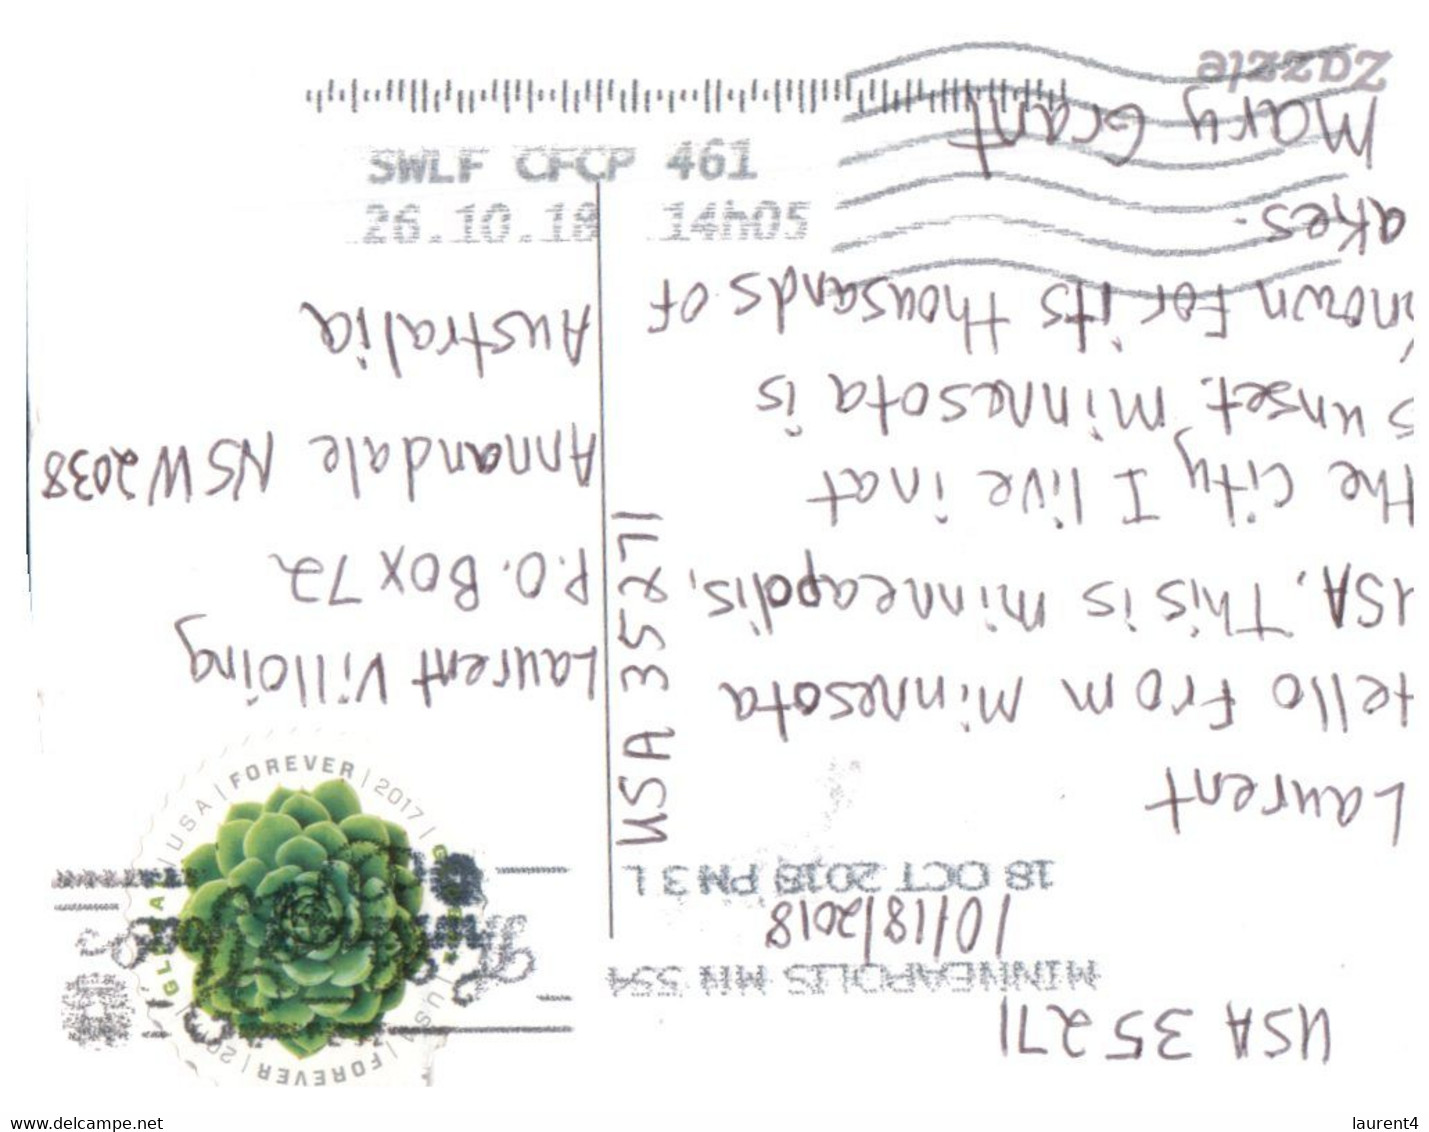 USA 35271
MINNEAPOLIS MN 554
10/18/2018
18 OCT 2018 PM 3 L
Laurent
Hello From Minnesota
USA. This is Minneapolis,
the city I live in at
Sunset. Minnesota is
known For its thousands of
akes.
Mary Grant
Zazzle
USA 35271
FOREVER | 2017 | GLOBAL | USA | FOREVER | 2017 | GLOBAL | USA
Laurent Villoing
P.O. Box 72
Annandale NSW 2038
Australia
SWLF CFCP 461
26.10.18 14h05
www.delcampe.net
laurent4